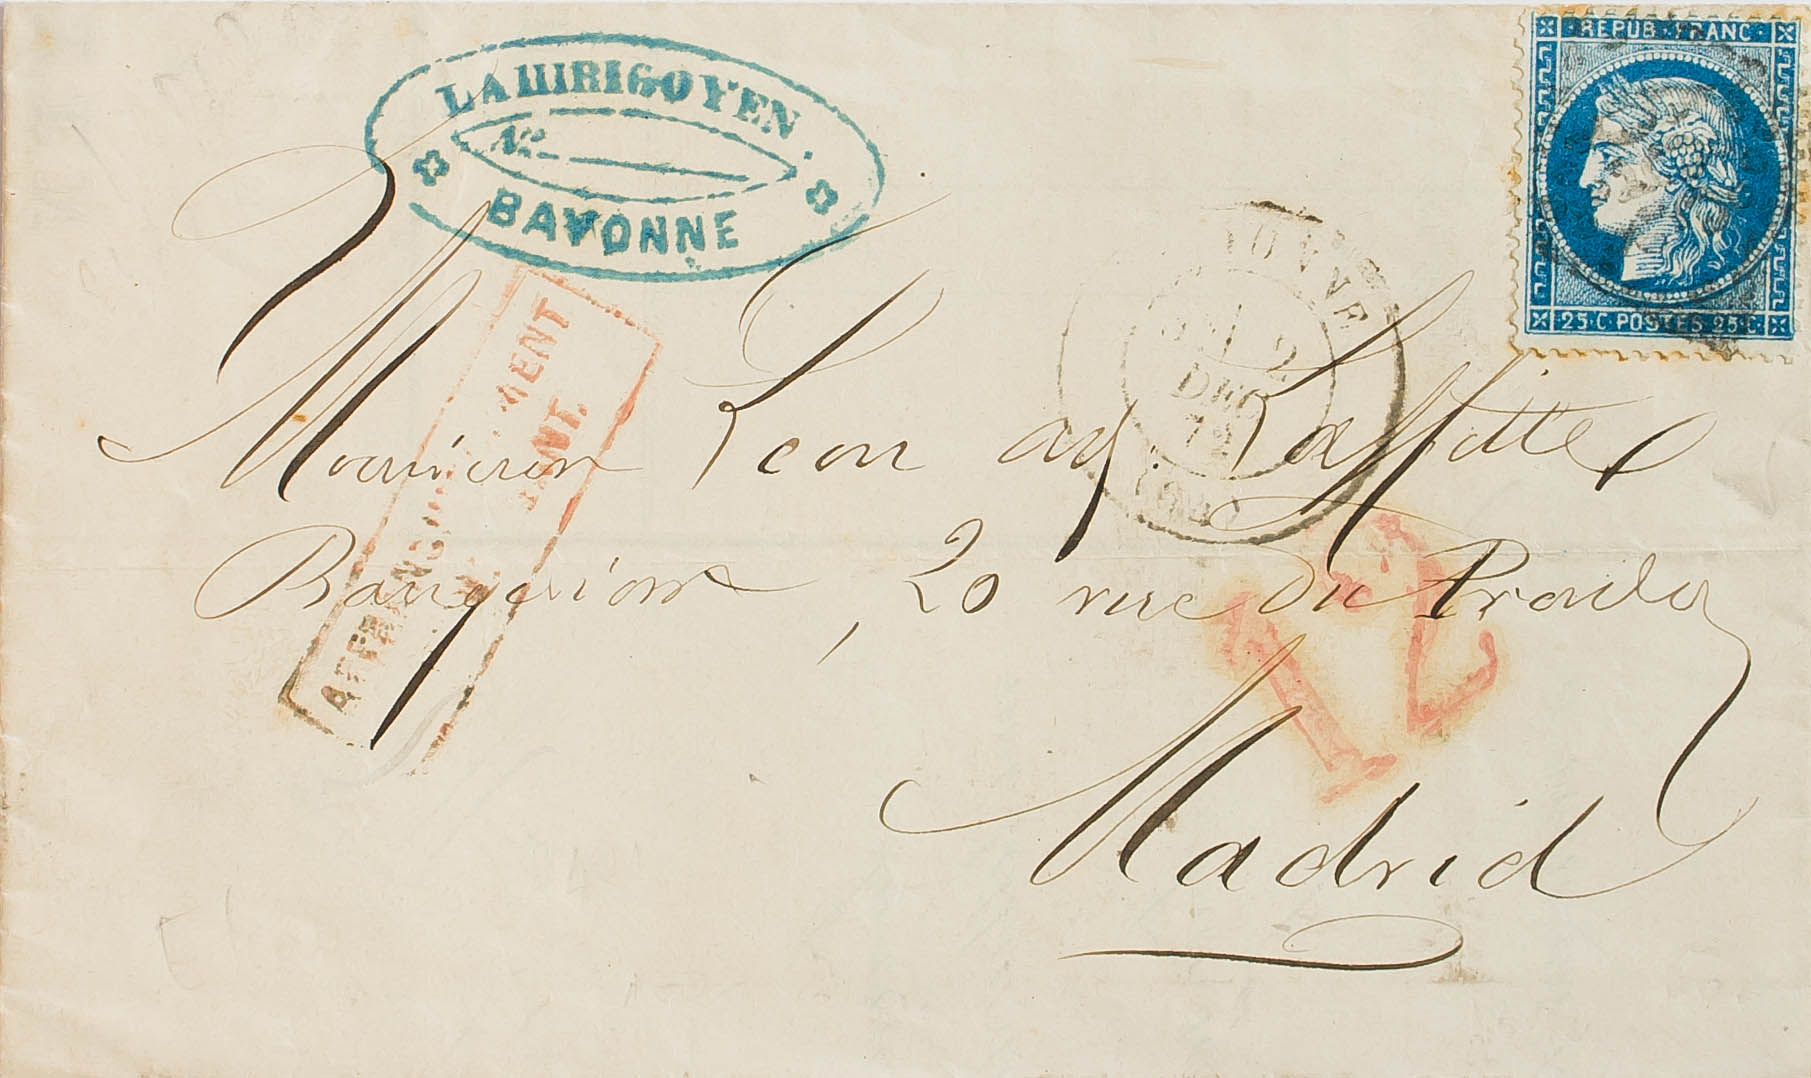 LAHIRIGOYEN.
Nº
BAYONNE
REPUB·FRANC·
25·C POSTES 25·C
ONNE
2
DEC
72
AFFRANCHISSEMENT
INSUFFISANT.
12
Monsieur Leon ad Laffitte
Banquier, 20 rue du Prado
Madrid